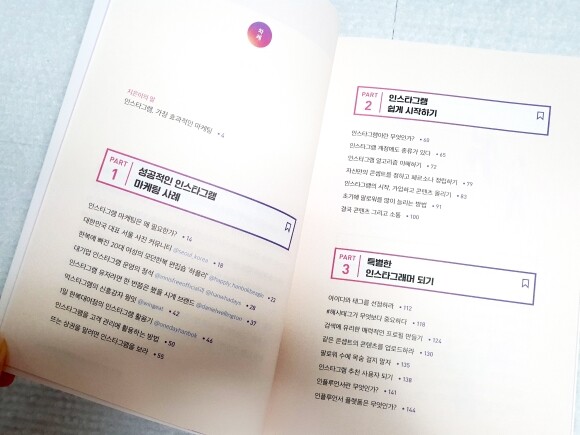 차례
지은이의 말
인스타그램, 가장 효과적인 마케팅 • 4
PART 1 성공적인 인스타그램
마케팅 사례
인스타그램 마케팅은 왜 필요한가? • 14
대한민국 대표 서울 사진 커뮤니티 @seoul_korea • 18
한복에 빠진 20대 여성의 모던한복 편집숍 '하플리' @happly.hanbokbeauv • 23
대기업 인스타그램 운영의 정석 @innisfreeofficial과 @hanwhadays • 28
인스타그램 유저라면 한 번쯤은 봤을 시계 브랜드 @danielwellington • 37
먹스타그램의 신흥강자 윙잇 @wingeat • 42
1일 한복대여점의 인스타그램 활용기 @onedayhanbok • 46
인스타그램을 고객 관리에 활용하는 방법 • 50
뜨는 상권을 알려면 인스타그램을 보라 • 55
PART 2 인스타그램
쉽게 시작하기
인스타그램이란 무엇인가? • 60
인스타그램 계정에도 종류가 있다 • 65
인스타그램 알고리즘 이해하기 • 72
자신만의 콘셉트를 정하고 페르소나 정립하기 • 79
인스타그램의 시작, 가입하고 콘텐츠 올리기 • 83
초기에 팔로워를 많이 늘리는 방법 • 91
결국 콘텐츠 그리고 소통 • 100
PART 3 특별한
인스타그래머 되기
아이디와 태그를 선점하라 • 112
#해시태그가 무엇보다 중요하다 • 118
검색에 유리한 매력적인 프로필 만들기 • 124
같은 콘셉트의 콘텐츠를 업로드하라 • 130
팔로워 수에 목숨 걸지 말자 • 135
인스타그램 추천 사용자 되기 • 138
인플루언서란 무엇인가? • 141
인플루언서 플랫폼은 무엇인가? • 144